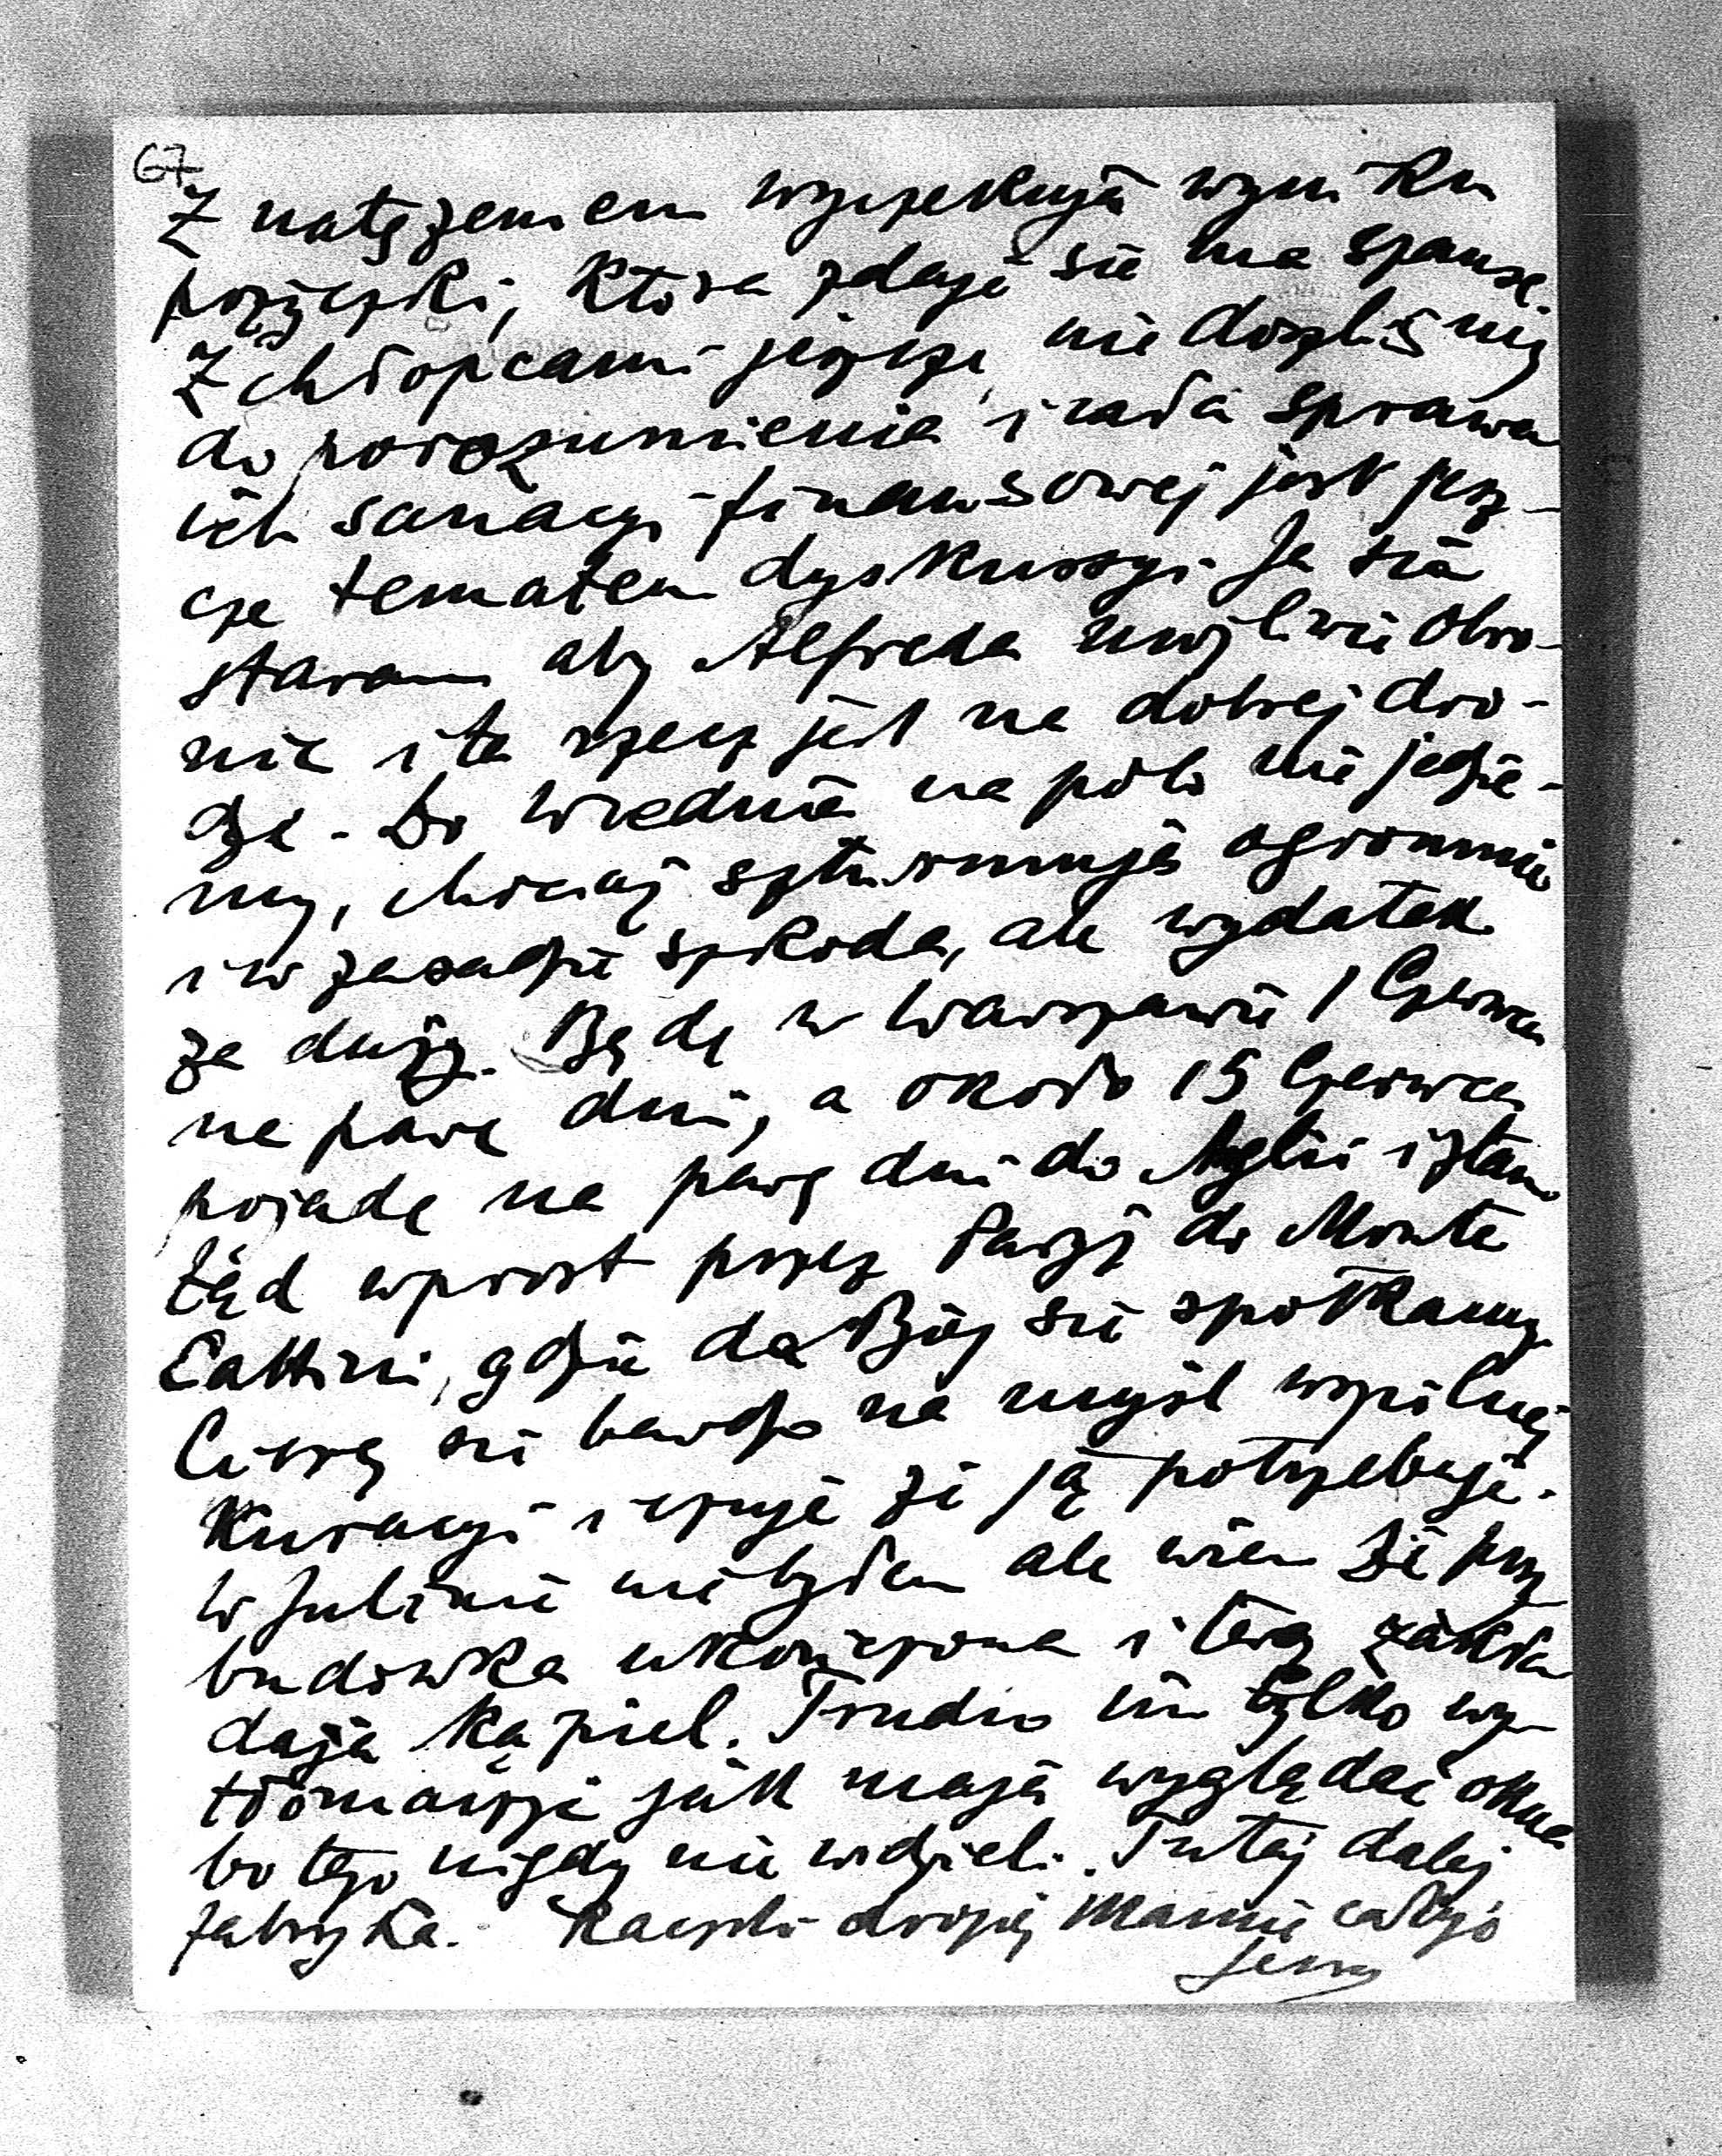 67
Z natężeniem wyczekuję wyniku
pożyczki, która zdaje się ma szanse.
Z chłopcami jeszcze nie doszliśmy
do porozumienia i cała sprawa
ich sanacyi finansowej jest jesz-
cze tematem dyskussyi. Ja się
staram aby Alfreda możliwie obro-
nić i ta rzecz jest na dobrej dro-
dze - Do Wiednia na polo nie jedzie-
my, chociaż szturmują ogromnie
i w zasadzie szkoda, ale wydatek
za duży. Będę w Warszawie 1 Czerwca
na parę dni, a około 15 Czerwca
pojadę na parę dni do Anglii i stam-
tąd wprost przez Paryż do Monte
Cattini, gdzie da Bóg się spotkamy.
Cieszę się bardzo na myśl wspólnej
kuracyi i czuję że ją potrzebuję.
W Julinie nie byłem ale wiem że przy
budówka ukończona i teraz zakła
dają kąpiel. Trudno im tylko wy-
tłómaczyć jak mają wyglądać okna
bo tego nigdy nie widzieli. Tutaj dalej
fabryka. Rączki drogiej Mamie całuję
Jerzy